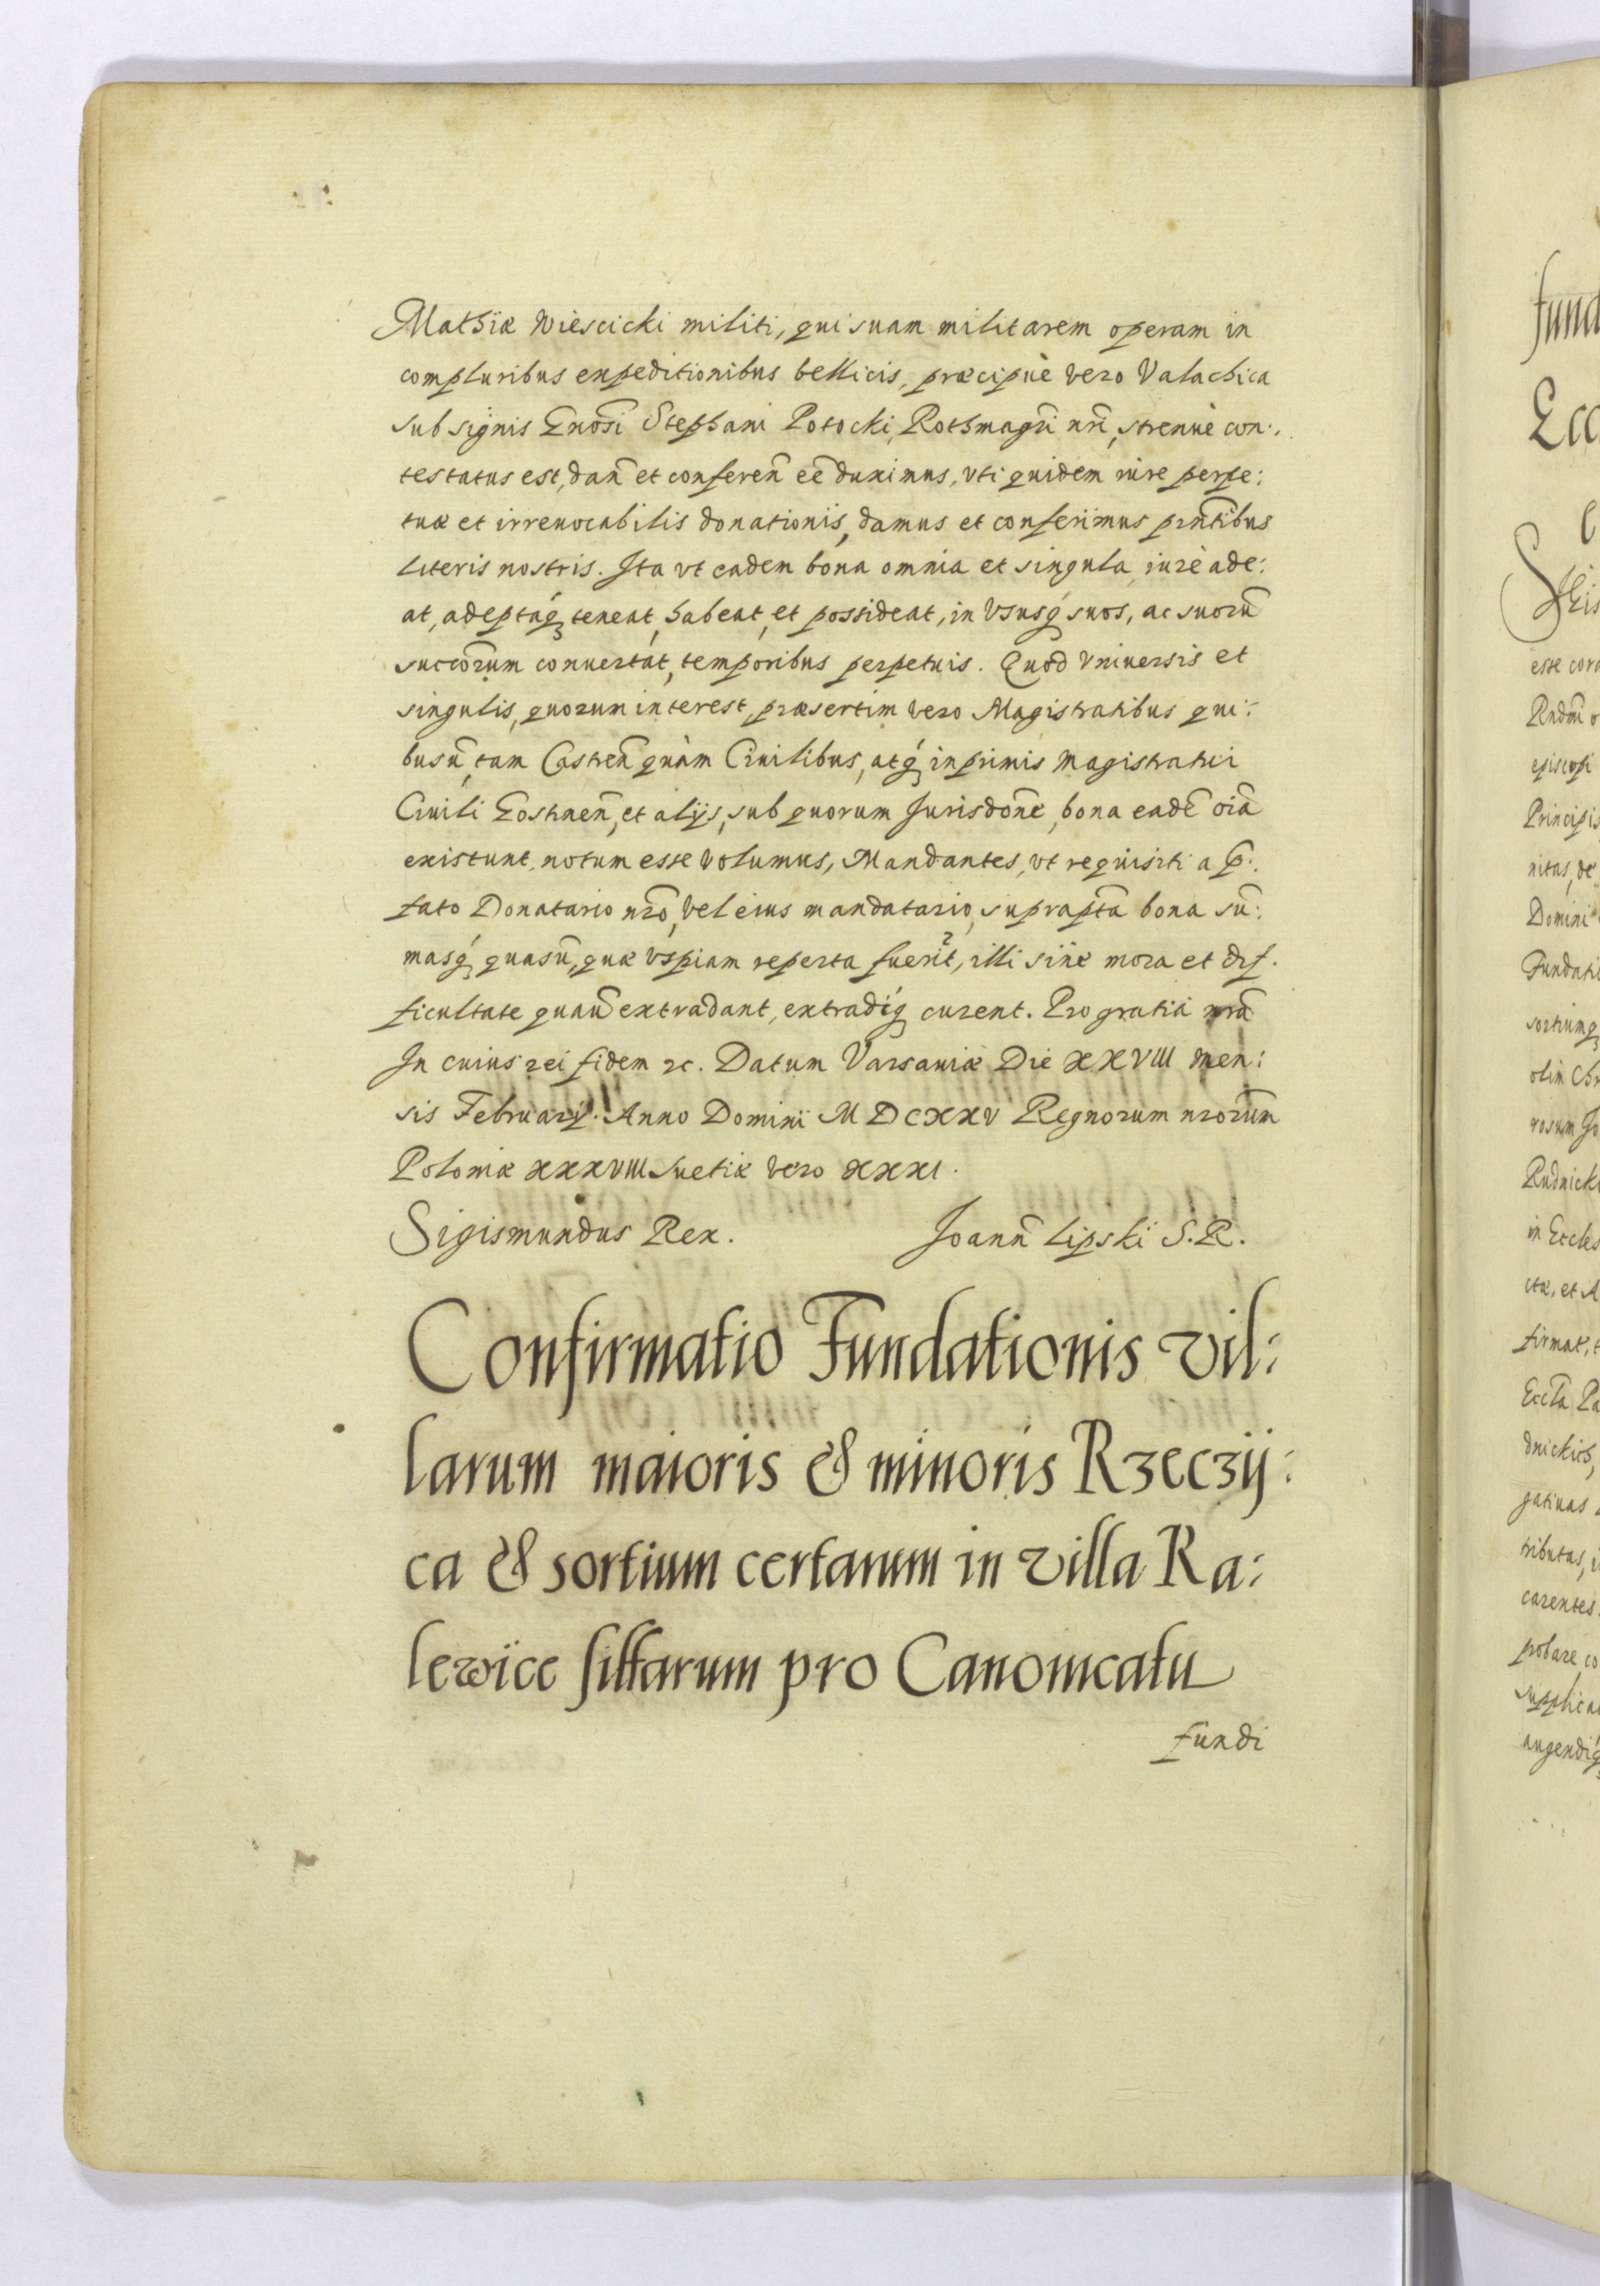 Mathiæ Wiescicki militi, qui suam militarem operam in
compluribus expeditionibus bellicis, præcipuè vero Valachica
sub signis Gnōsi Stephani Potocki Rothmagrī nrī, strenuè con:
testatus est, dan̄ et conferen̄ eē duximus, vti quidem iure perpe:
tuæ et irreuocabilis donationis, damus et conferimus prn̄tibus
literis nostris. Ita vt eadem bona omnia et singula iurè ade:
at, adeptáq₃ teneat, habeat, et possideat, in vsusq₃ suos, ac suorū
succōrum conuertat, temporibus perpetuis. Quod vniuersis et
singulis, quorum interest, præsertim vero Magistratibus qui:
busū, tam Castren̄ quàm Ciuilibus, atq₃ inprimis Magistratui
Ciuili Gostnen̄, et alijs, sub quorum Jurisdōne, bona eadē oīa
existunt, notum esse volumus, Mandantes, vt requisiti a p̄:
fato Donatario nr̄o, vel eius mandatario, supraptā bona sū:
masq₃ quasū, quæ vspiam reperta fuerit, illi sine mora et dif:
ficultate quaū extradant, extradiq₃ curent. Pro gratia nrā
In cuius rei fidem ꝛc. Datum Varsauiæ Die XXVIII men:
sis Februarij. Anno Domini MDCXXV Regnorum nrorūm
Poloniæ XXXVIII Suetiæ vero XXXI.
Sigismundus Rex. Joann̄ Lipski S. R.
Confirmatio Fundationis vil:
larum maioris & minoris Rzeczij:
ca & sortium certarum in villa Ra:
lewice sittarum pro Canonicatu
fundi
fund
Ecc